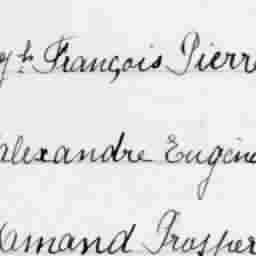 gte François Pierre
Alexandre Eugène
Armand Prosper